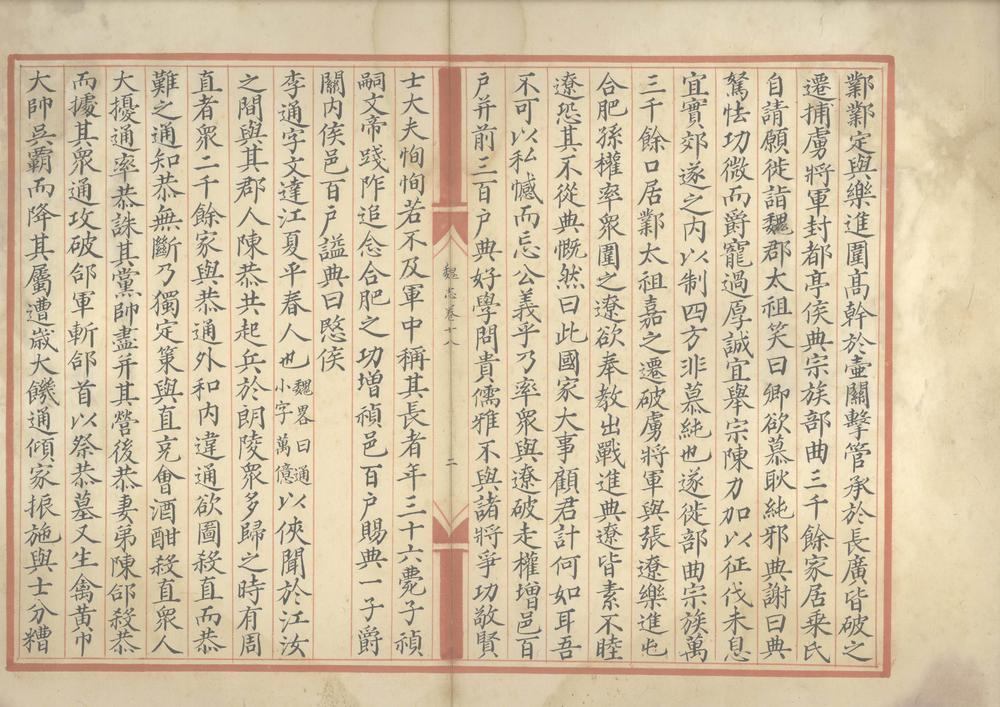 鄴鄴定與樂進圍高幹於壷關擊管承於長廣皆破之
遷捕虜將軍封都亭侯典宗族部曲三千餘家居乗氏
自請願徙詣魏郡太祖笑曰卿欲慕耿純邪典謝曰典
駑怯功微而爵寵過厚誠宜舉宗陳力加以征伐未息
宜實郊遂之内以制四方非慕純也遂徙部曲宗族萬
三千餘口居鄴太祖嘉之遷破虜將軍與張遼樂進屯
合肥孫權率衆圍之遼欲奉教出戰進典遼皆素不睦
遼恐其不從典慨然曰此國家大事顧君計何如耳吾
不可以私憾而忘公義乎乃率衆與遼破走權增邑百
户并前三百户典好學問貴儒雅不與諸將爭功敬賢
魏志卷十八
二
士大夫恂恂若不及軍中稱其長者年三十六薨子禎
嗣文帝踐阼追念合肥之功增禎邑百户賜典一子爵
關内侯邑百户謚典曰愍侯
李通字文達江夏平春人也魏畧曰通小字萬億以俠聞於江汝
之間與其郡人陳恭共起兵於朗陵衆多歸之時有周
直者衆二千餘家與恭通外和内違通欲圖殺直而恭
難之通知恭無斷乃獨定策與直克會酒酣殺直衆人
大擾通率恭誅其黨帥盡并其營後恭妻弟陳郃殺恭
而據其衆通攻破郃軍斬郃首以祭恭墓又生禽黄巾
大帥吳霸而降其屬遭嵗大饑通傾家振施與士分糟